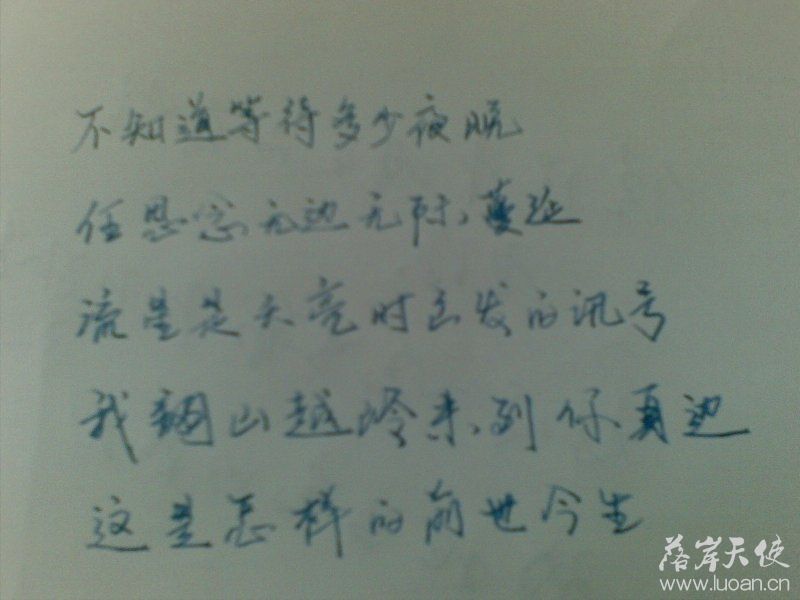 不知道等待多少夜晚
任思念无边无际蔓延
流星是天亮时出发的讯号
我翻山越岭来到你身边
这是怎样的前世今生
落岸天使
www.luoan.cn